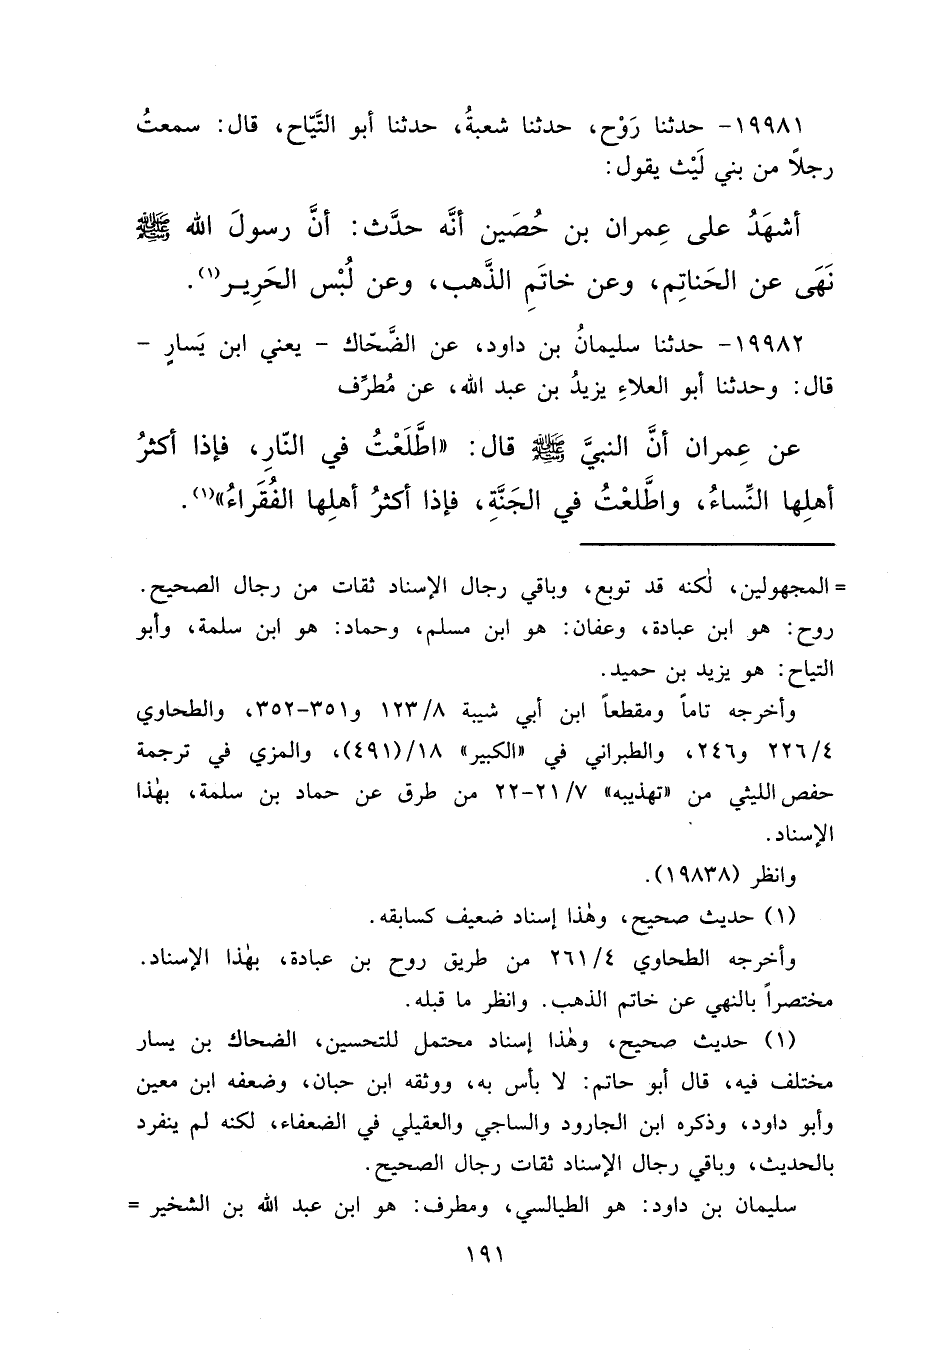 ١٩٩٨١- حدثنا رَوْح، حدثنا شعبةُ، حدثنا أبو التَّيّاح، قال: سمعتُ
رجلاً من بني لَيْث يقول:
أشهَدُ على عِمران بن حُصَين أنَّه حدَّث: أنَّ رسولَ الله ﷺ
نَهَى عن الحَناتِم، وعن خاتَمِ الذَّهب، وعن لُبْس الحَرِيـر(١).
١٩٩٨٢- حدثنا سليمانُ بن داود، عن الضَّحّاك - يعني ابن يَسارٍ -
قال: وحدثنا أبو العلاءِ يزيدُ بن عبد الله، عن مُطرِّف
عن عِمران أنَّ النبيَّ ﷺ قال: «اطَّلَعْتُ في النّارِ، فإذا أكثرُ
أهلِها النِّساءُ، واطَّلعْتُ في الجَنَّةِ، فإذا أكثرُ أهلِها الفُقَراءُ»(١).
= المجهولين، لٰكنه قد توبع، وباقي رجال الإسناد ثقات من رجال الصحيح.
روح: هو ابن عبادة، وعفان: هو ابن مسلم، وحماد: هو ابن سلمة، وأبو
التياح: هو يزيد بن حميد.
وأخرجه تاماً ومقطعاً ابن أبي شيبة ١٢٣/٨ و٣٥١-٣٥٢، والطحاوي
٢٢٦/٤ و٢٤٦، والطبراني في «الكبير» ١٨/(٤٩١)، والمزي في ترجمة
حفص الليثي من «تهذيبه» ٢١/٧-٢٢ من طرق عن حماد بن سلمة، بهٰذا
الإسناد.
وانظر (١٩٨٣٨).
(١) حديث صحيح، وهٰذا إسناد ضعيف كسابقه.
وأخرجه الطحاوي ٢٦١/٤ من طريق روح بن عبادة، بهٰذا الإسناد.
مختصراً بالنهي عن خاتم الذهب. وانظر ما قبله.
(١) حديث صحيح، وهٰذا إسناد محتمل للتحسين، الضحاك بن يسار
مختلف فيه، قال أبو حاتم: لا بأس به، ووثقه ابن حبان، وضعفه ابن معين
وأبو داود، وذكره ابن الجارود والساجي والعقيلي في الضعفاء، لكنه لم ينفرد
بالحديث، وباقي رجال الإسناد ثقات رجال الصحيح.
سليمان بن داود: هو الطيالسي، ومطرف: هو ابن عبد الله بن الشخير =
١٩١